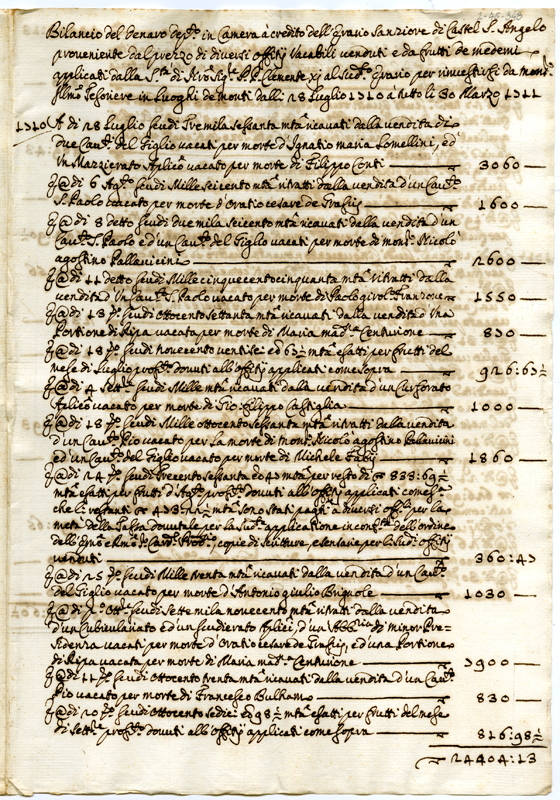 Bilancio del denaro depto in Camera à credito dell'Erario Sanziore di Castel S. Angelo
proveniente dal prezzo di diversi offitij Vacabili venduti e da frutti de medemi
applicati dalla Sta di Nro Sigre P.P. Clemente xj al sudo Erario per rinvestirsi da monsr
Illmo Tesoriere in Luoghi de monti dalli 28 Luglio 1710 à tutto li 30 Marzo 1711
1710 A di 28 Luglio scudi Tremila sessanta mta ricavati dalla vendita di
due Cavti del Giglio vacati per morte d'Ignatio maria Lomellini, ed
Un Mazzierato Aplico vacato per morte di Filippo Conti — 3060 —
E @ di 6 Agto scudi Mille seicento mta ritratti dalla vendita d'un Cavto
S. Paolo vacato per morte d'Oratio cesare de — 1600 —
E @ di 8 detto scudi due mila seicento mta ricavati dalla vendita d'un
Cavto S. Paolo ed un Cavto del Giglio vacati per morte di monsr Nicolò
agostino Pallavicini — 2600 —
E @ di 11 detto scudi Mille cinquecentocinquanta mta ritratti dalla
vendita d'Un Cavto S. Paolo vacato per morte di Paolo Girolo Franzone — 1550 —
E @ di 13 do scudi Ottocento settanta mta ricavati dalla vendita d'Una
Portione di Ripa vacata per morte di Maria madna Centurione — 830 —
E @ di 18 do scudi novecento ventisei ed 63½ mta esatti per frutti del
mese di Luglio prosso dovuti all'offitij applicati come sopra — 926:63½
E @ di 4 Sette scudi Mille mta ricavati dalla vendita d'un Cursorato
Aplico vacato per morte di Gio: Filippo Castiglia — 1000 —
E @ di 18 do scudi Mille ottocento sessanta mta ritratti dalla vendita
d'un Cavto Pio vacato per la morte di monsr Nicolò agostino Pallavicini
ed un Cavto del Giglio vacato per morte di Michele — 1860 —
E @ di 24 do scudi Trecento sessanta ed 43 mta per resto di 833:69½
mta esatti per frutti d'Agto prosso dovuti all'offitij applicati come sa
che li restanti 473:26½ mta sono stati pagati a diversi offli per la
metà della Tassa dovutale per la sudta applicatione in confto dell'ordine
dell'Emo e Rmo Sr Cardl copie di scritture, e senserie per li sudi offitij
venduti — 360:43
E @ di 25 do scudi Mille trenta mta ricavati dalla vendita d'un Cavto
del Giglio vacato per morte d'Antonio giulio Brignole — 1030 —
E @ di po Ottre scudi Settemila novecento mta ritratti dalla vendita
d'un Cubiculariato ed un scudierato Aplici, d'un di minor Pre-
sidenza vacati per morte d'Oratio cesare de ed una Portione
di Ripa vacata per morte di Maria madna Centurione — 7900 —
E @ di 11 do scudi Ottocento trenta mta ricavati dalla vendita d'un Cavto
Pio vacato per morte di Francesco — 830 —
E @ di 20 do scudi Ottocento sedici ed 98½ mta esatti per frutti del mese
di Sette prosso dovuti all'offitij applicati come sopra — 816:98½
24404:13